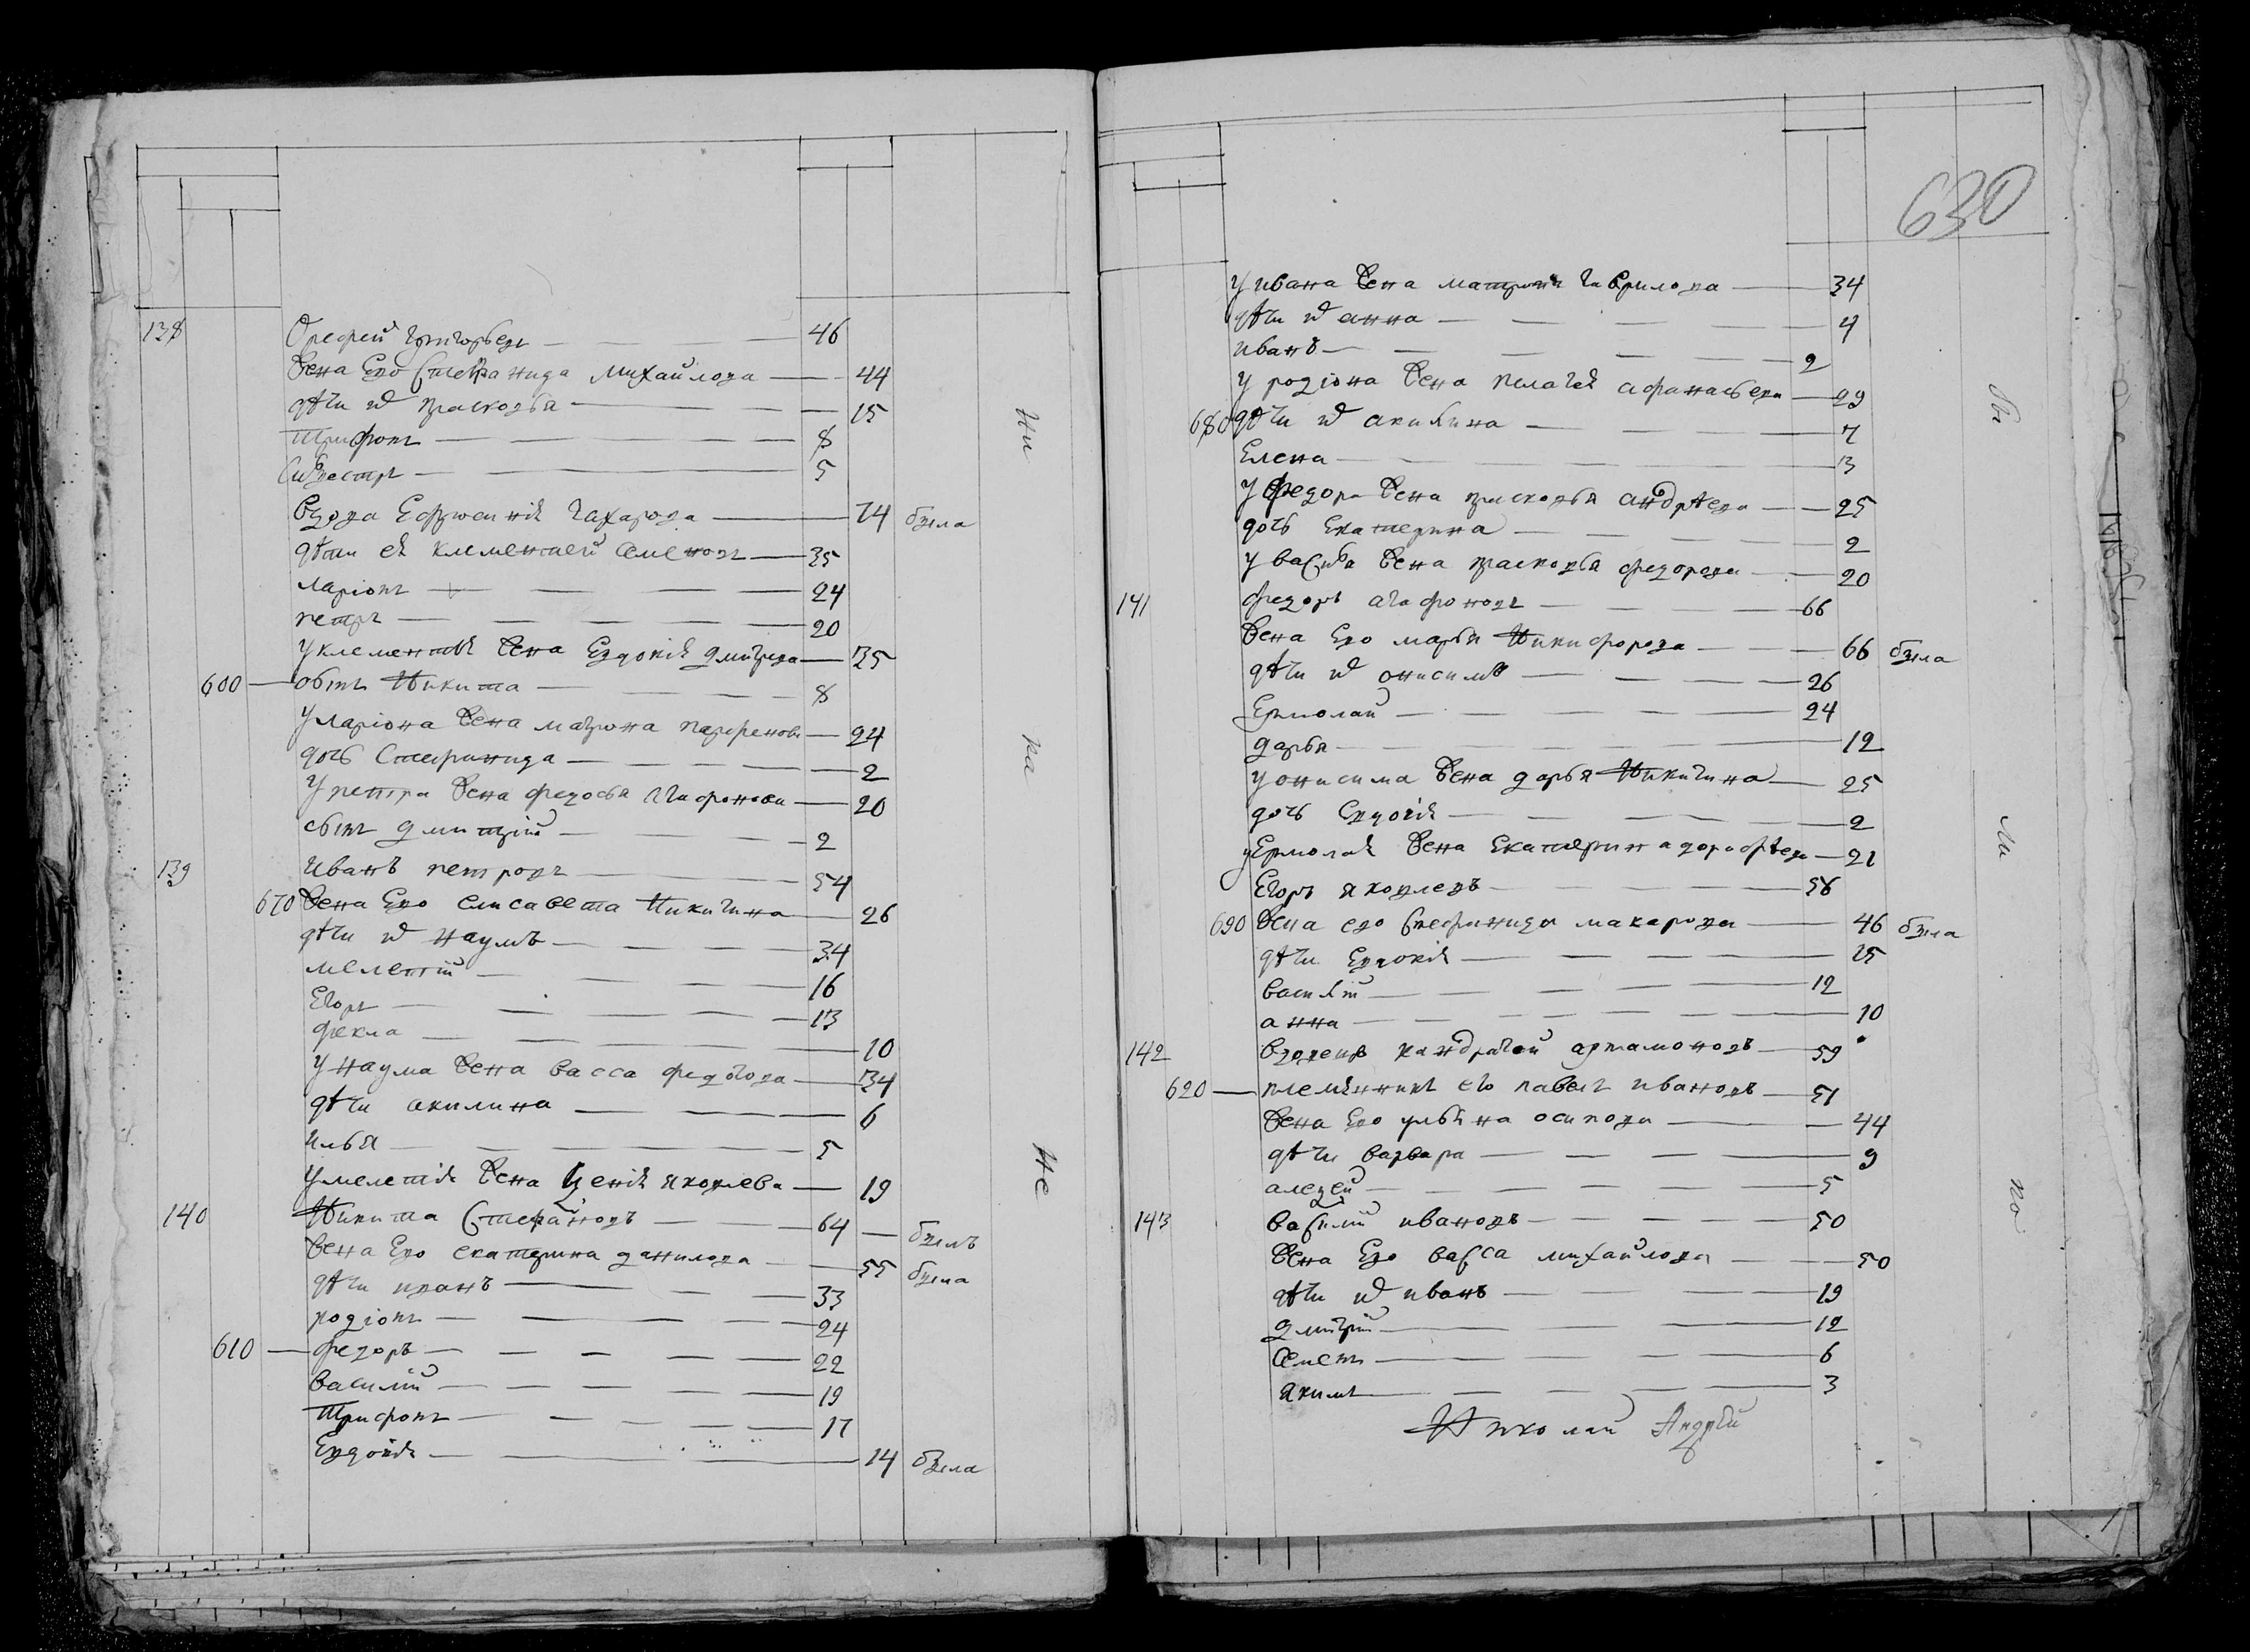 138 Орефей григорьевъ 46
жена Его Стефанида михайлова 44
дѣти их прасковья 15
трифонъ 8
Сильвестръ 5
вдова Ефросинія захарова 74 была
дѣти ея клементей семеновъ 35
ларіонъ 24
петръ 20
у клементія жена Евдокія дмитрева 35
600 сынъ Никита 8
у ларіона жена матрона парфенова 24
дочь Стефанида 2
у петра жена федосья агафонова 20
сынъ дмитрій 2
139 иванъ петровъ 54
670 жена Его елисавета Никитина 26
дѣти их наумъ 34
мелетій 16
Егоръ 13
фекла 10
у наума жена васса федотова 34
дѣти акилина 6
илья 5
у мелетія жена яковлева 19
140 Никита Стефановъ 64 былъ
жена Его екатерина данилова 55 была
дѣти иванъ 33
родіонъ 24
610 федоръ 22
василій 19
трифонъ 17
Евдокія 14 была
Ни
ка
Не
630
у ивана жена матрона гаврилова 34
дѣти их анна 4
иванъ 2
у родіона жена пелагея афанасьева 29
680 дѣти их акилина 7
Елена 3
у федора жена прасковья андрѣева 25
дочь Екатерина 2
у василья жена прасковья федорова 20
141 федоръ агафоновъ 66
жена Его марья Никифорова 66 была
дѣти их онисимъ 26
Ермолай 24
дарья 12
у онисима жена дарья Никитина 25
дочь Евдокія 2
у Ермолая жена Екатерина дорофѣева 21
Егоръ яковлевъ 56
690 жена его Стефанида макарова 46 была
дѣти Евдокія 15
василій 12
анна 10
142 вдовецъ кандратей артамоновъ 59
620 племянникъ его павелъ ивановъ 51
жена Его ульяна осипова 44
дѣти варвара 9
алексей 5
143 василій ивановъ 50
жена Его васса михайлова 50
дѣти их иванъ 19
дмитрій 12
семенъ 6
якимъ 3
Николай Андрей
ли
ко